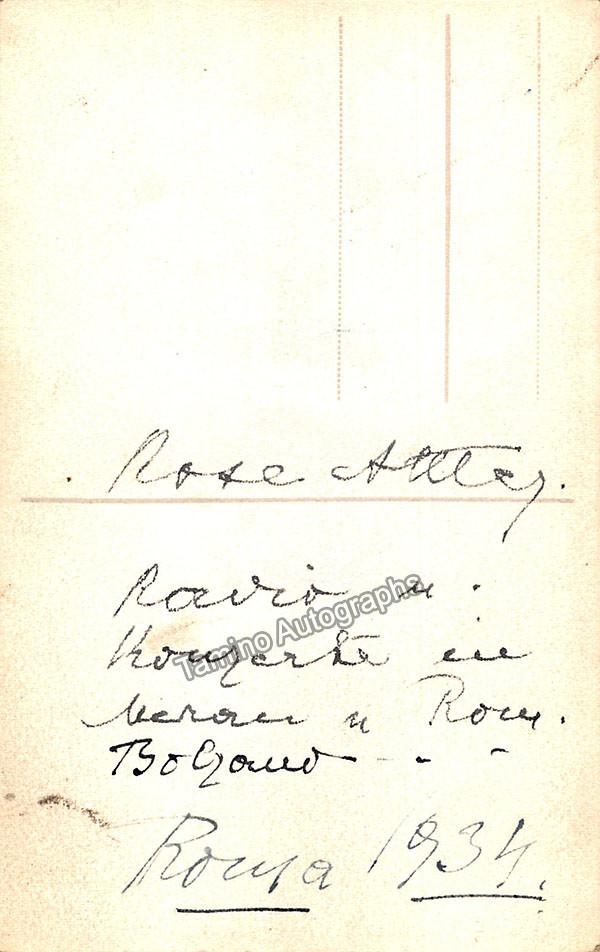 Rose Attey.
Radio u.
Konzerte in
Meran u Rom.
Bolzano - -
Roma 1934.
Tamino Autographs